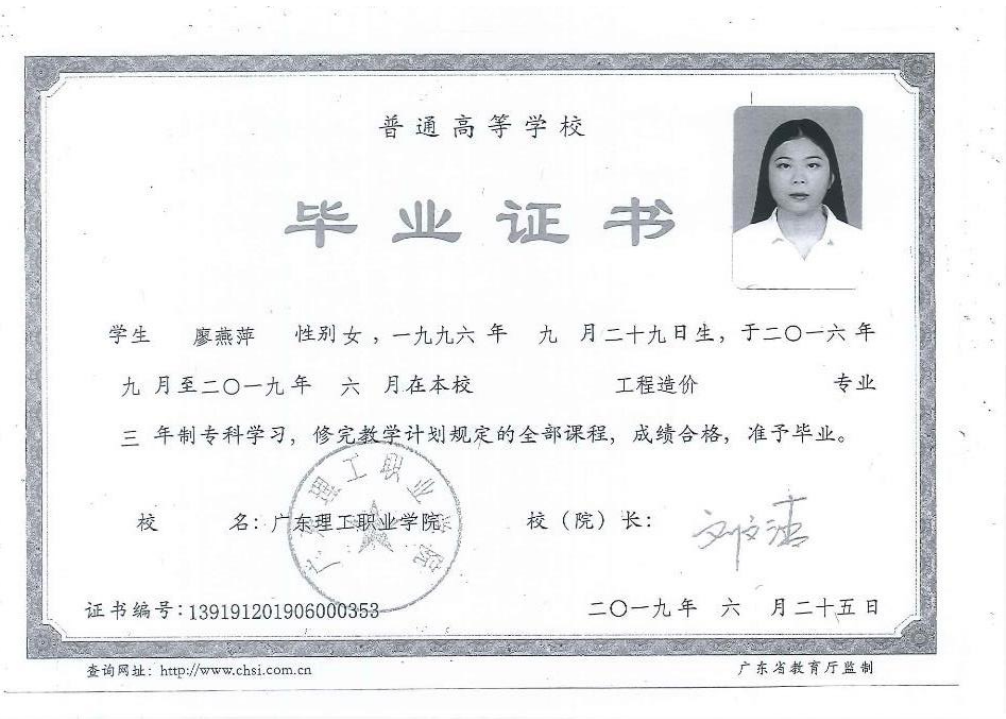 普通高等学校
毕业证书
学生 廖燕萍 性别女，一九九六年 九 月二十九日生，于二〇一六年
九 月至二〇一九年 六 月在本校 工程造价 专业
三 年制专科学习，修完教学计划规定的全部课程，成绩合格，准予毕业。
校 名：广东理工职业学院 校（院）长：
广东理工职业学院
证书编号：139191201906000353 二〇一九年 六 月二十五日
查询网址：http://www.chsi.com.cn 广东省教育厅监制